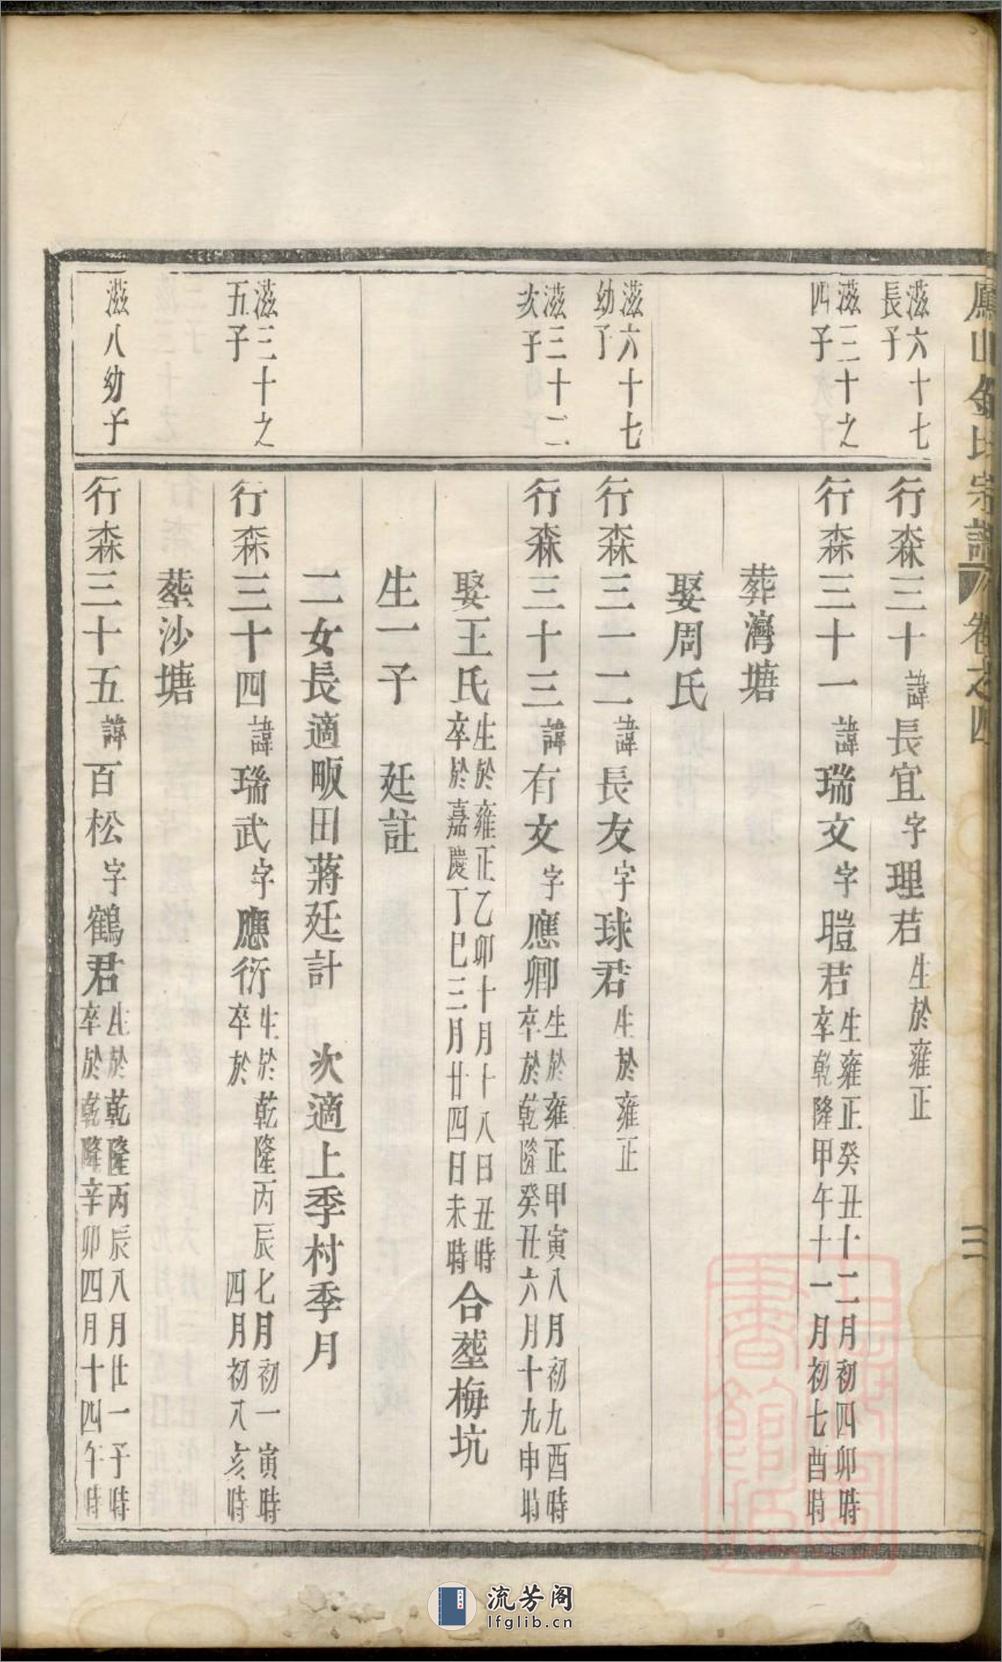 鳳山金氏宗譜 卷之四
三
滋六十七
長子
行森三十諱長宜字理君生於雍正
滋三十之
四子
行森三十一諱瑞文字暟君生雍正癸丑十二月初四卯時
卒乾隆甲午十一月初七酉時
葬灣塘
娶周氏
滋六十七
幼子
行森三一二諱長友字球君生於雍正
滋三十二
次子
行森三十三諱有文字應卿生於雍正甲寅八月初九酉時
卒於乾隆癸丑六月十九申時
娶王氏生於雍正乙卯十月十八日丑時
卒於嘉慶丁巳三月廿四日未時
合塟梅坑
生一子 廷註
二女長適畈田蔣廷計 次適上季村季月
滋三十之
五子
行森三十四諱瑞武字應衍生於乾隆丙辰七月初一寅時
卒於 四月初八亥時
塟沙塘
滋八幼子
行森三十五諱百松字鶴君生於乾隆丙辰八月廿一子時
卒於乾隆辛卯四月十四午時
流芳阁
lfglib.cn